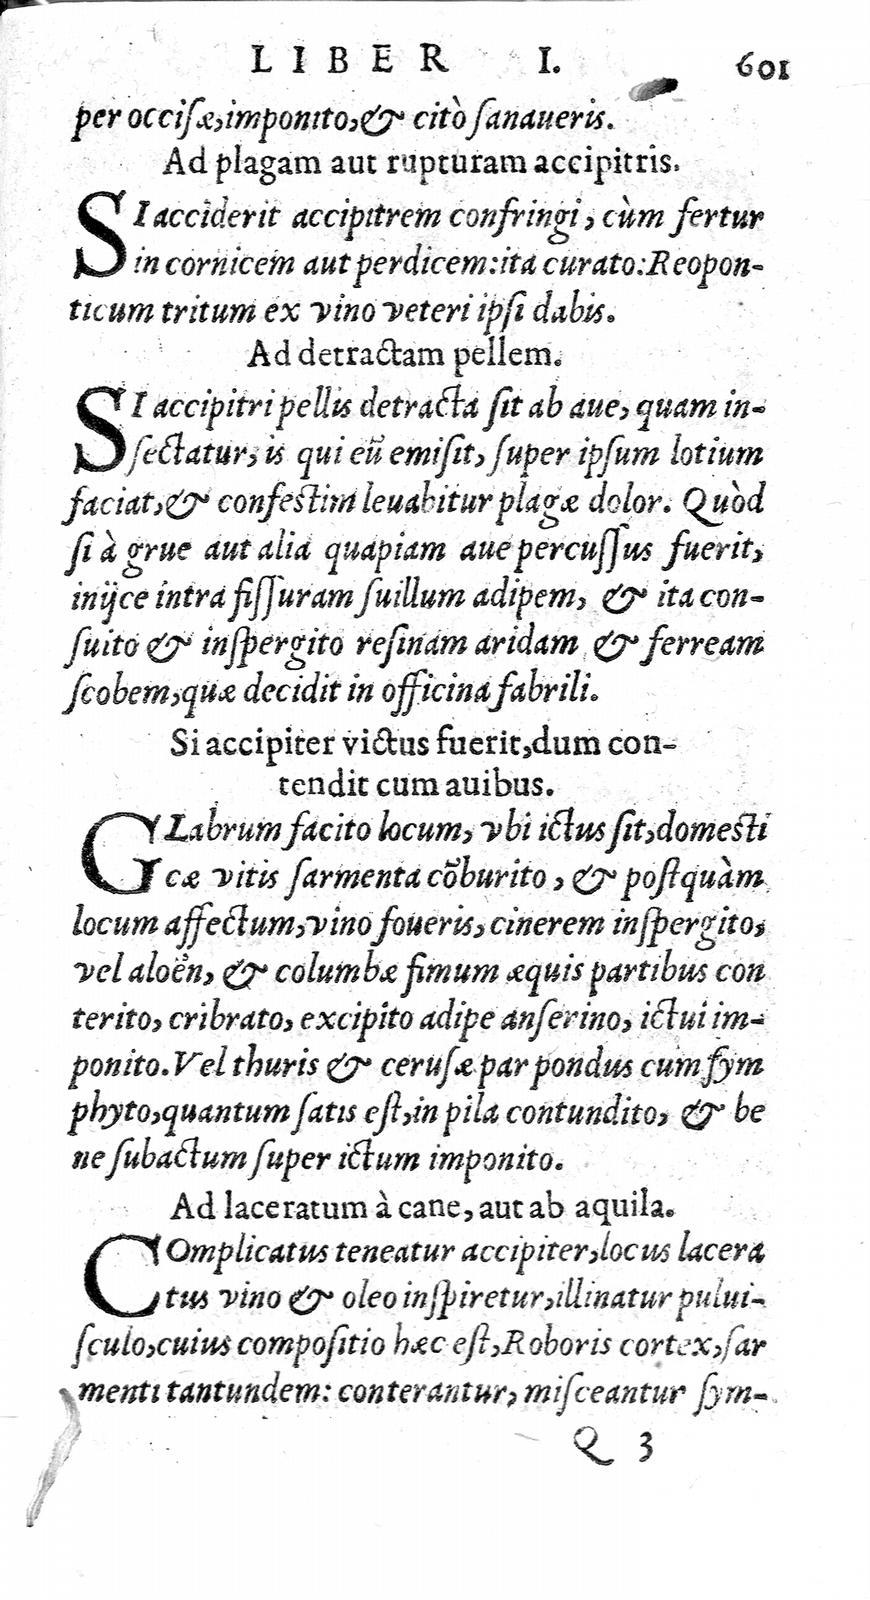 LIBER I. 601
per occisæ, imponito, & citò sanaueris.
Ad plagam aut rupturam accipitris.
SI acciderit accipitrem confringi, cùm fertur
in cornicem aut perdicem: ita curato: Reopon-
ticum tritum ex vino veteri ipsi dabis.
Ad detractam pellem.
SI accipitri pellis detracta sit ab aue, quam in-
sectatur, is qui eū emisit, super ipsum lotium
faciat, & confestim leuabitur plagæ dolor. Quòd
si à grue aut alia quapiam aue percussus fuerit,
inijce intra fissuram suillum adipem, & ita con-
suito & inspergito resinam aridam & ferream
scobem, quæ decidit in officina fabrili.
Si accipiter victus fuerit, dum con-
tendit cum auibus.
GLabrum facito locum, vbi ictus sit, domesti
cæ vitis sarmenta cōburito, & postquàm
locum affectum, vino foueris, cinerem inspergito,
vel aloën, & columbæ fimum æquis partibus con
terito, cribrato, excipito adipe anserino, ictui im-
ponito. Vel thuris & cerusæ par pondus cum sym
phyto, quantum satis est, in pila contundito, & be
ne subactum super ictum imponito.
Ad laceratum à cane, aut ab aquila.
COmplicatus teneatur accipiter, locus lacera
tus vino & oleo inspiretur, illinatur pului-
sculo, cuius compositio hæc est, Roboris cortex, sar
menti tantundem: conterantur, misceantur sym-
Q 3